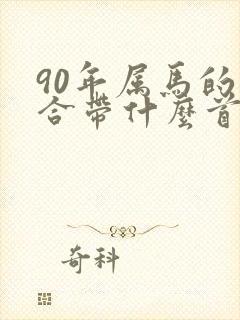 90年属馬的
合帶什麼首
奇科